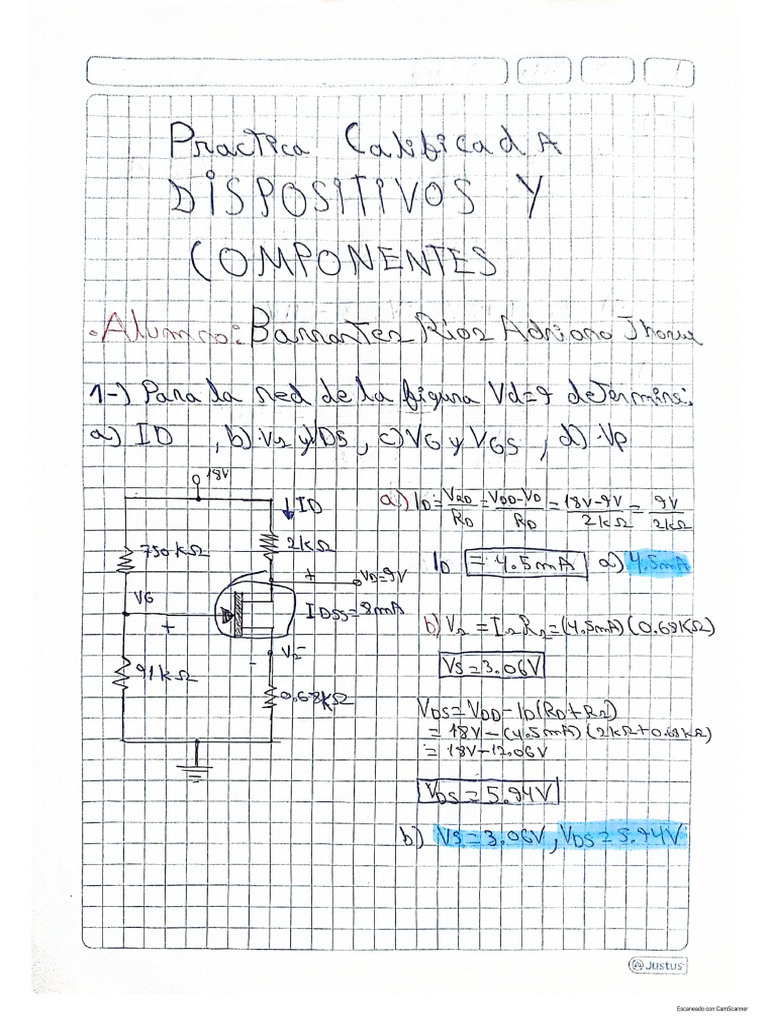 Practica Calificada
DISPOSITIVOS Y
COMPONENTES
.Alumno: Barrantes Rios Adriano Jhosue
1-) Para la red de la figura Vd=9 determine:
a) ID , b) Vs y VDS, c) VG y VGS , d) Vp
18V
ID
2KΩ
750KΩ
VG
+
+
VD=9V
IDSS=8mA
-
Vs
91KΩ
0.68KΩ
a) ID = VRD/RD = VDD-VD/RD = 18V-9V/2KΩ = 9V/2KΩ
ID = 4.5mA a) 4.5mA
b) Vs = IsRs = (4.5mA)(0.68KΩ)
Vs = 3.06V
VDS = VDD - ID(RD+Rs)
= 18V - (4.5mA)(2KΩ+0.68KΩ)
= 18V - 12.06V
VDS = 5.94V
b) Vs = 3.06V, VDS = 5.94V
Justus
Escaneado con CamScanner